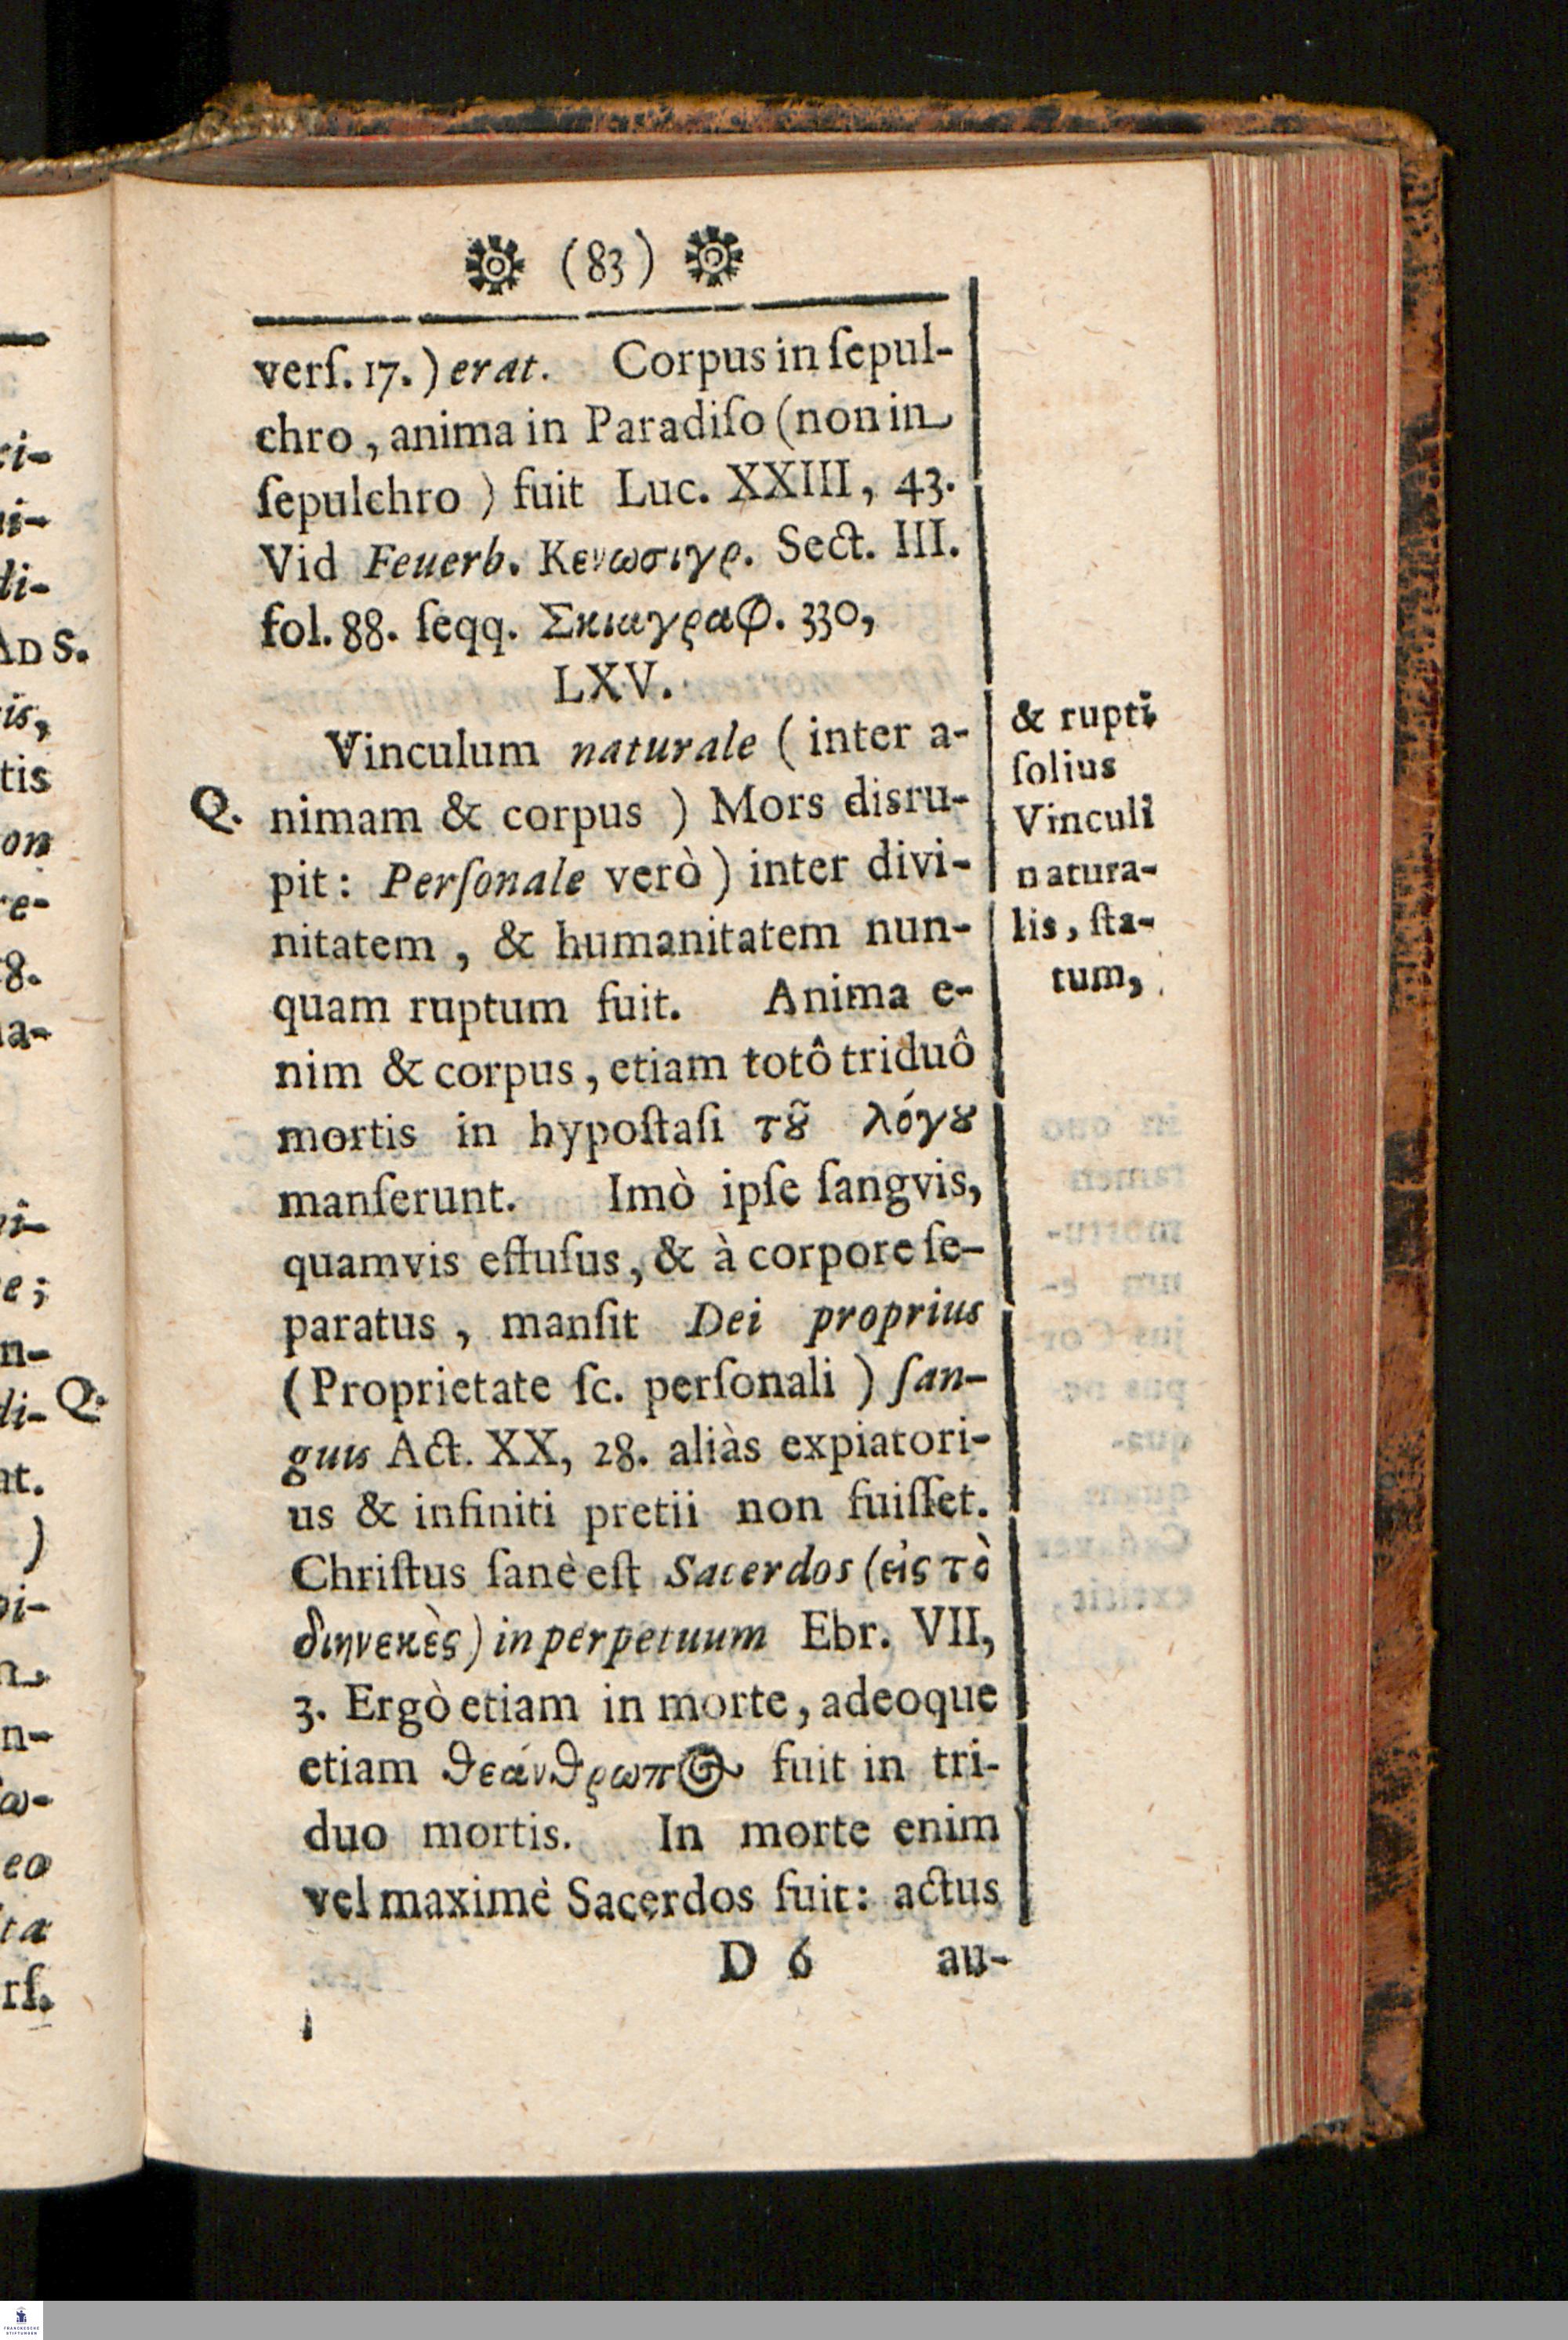 (83)
verſ. 17.) erat. Corpus in ſepul-
chro, anima in Paradiſo (non in
ſepulchro) fuit Luc. XXIII, 43.
Vid Feuerb. Κενωσιγρ. Sect. III.
fol. 88. ſeqq. Σκιαγραφ. 330,
LXV.
Vinculum naturale (inter a-
Q. nimam & corpus) Mors disru-
pit: Perſonale verò) inter divi-
nitatem, & humanitatem nun-
quam ruptum fuit. Anima e-
nim & corpus, etiam totô triduô
mortis in hypoſtaſi τȣ͂ λόγȣ
manſerunt. Imò ipſe ſangvis,
quamvis effuſus, & à corpore ſe-
paratus, manſit Dei proprius
(Proprietate ſc. perſonali) ſan-
guis Act. XX, 28. aliàs expiatori-
us & infiniti pretii non fuiſſet.
Chriſtus ſanè eſt Sacerdos (εἰς τὸ
διηνεκὲς) in perpetuum Ebr. VII,
3. Ergò etiam in morte, adeoque
etiam θεάνθρωπος fuit in tri-
duo mortis. In morte enim
vel maximè Sacerdos fuit: actus
D 6 au-
& rupti
ſolius
Vinculi
natura-
lis, ſta-
tum,
ri-
ni-
di-
AD S.
is,
tis
on
re-
8.
a-
e;
n-
di- Q.
at.
)
n-
eo
ta
rſ.
FRANCKESCHE
STIFTUNGEN